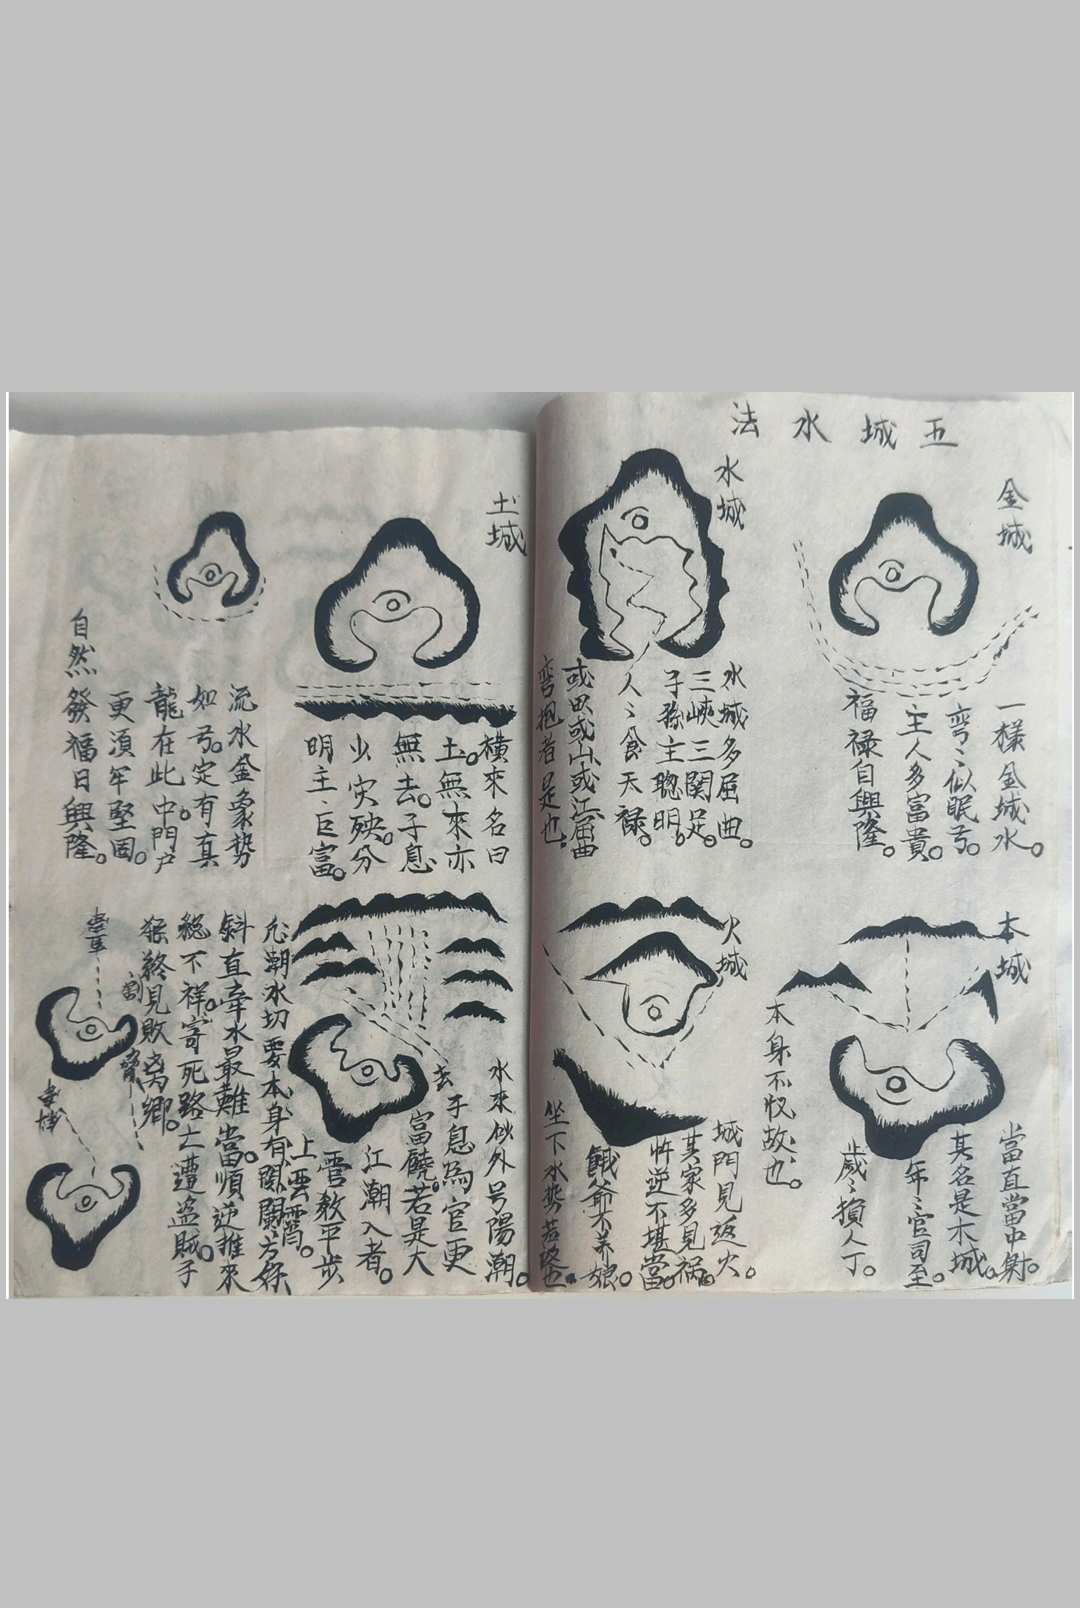 五城水法
金城
一樣金城水。
弯〻似眠弓。
主人多富貴。
福禄自興隆。
水城
水城多屈曲。
三峽三関足。
子孫主聰明。
人〻食天禄。
或田或山或江屈曲
弯抱者是也。
木城
當直當中射。
其名是木城。
年〻官司至。
歲〻損人丁。
本身不悦故也。
火城
城門見返火。
其家多見禍。
忤逆不堪當。
餓爺不养娘。
坐下水势若
土城
橫來名曰
土。無來亦
無去。子息
少灾殃。分
明主巨富。
流水金象势
如弓。定有真
龍在此中。門户
更須牢堅固。
自然發福日興隆。
水來似外号陽潮。
去子息為官更
富饒。若是大
江潮入者。
管教平步
上雲霄。
凡潮水切要本身有関闌方好
斜直牽水最難當。順逆推來
總不祥。寄死路亡遭盗賊。子
孫終見敗离鄉。
割
脅